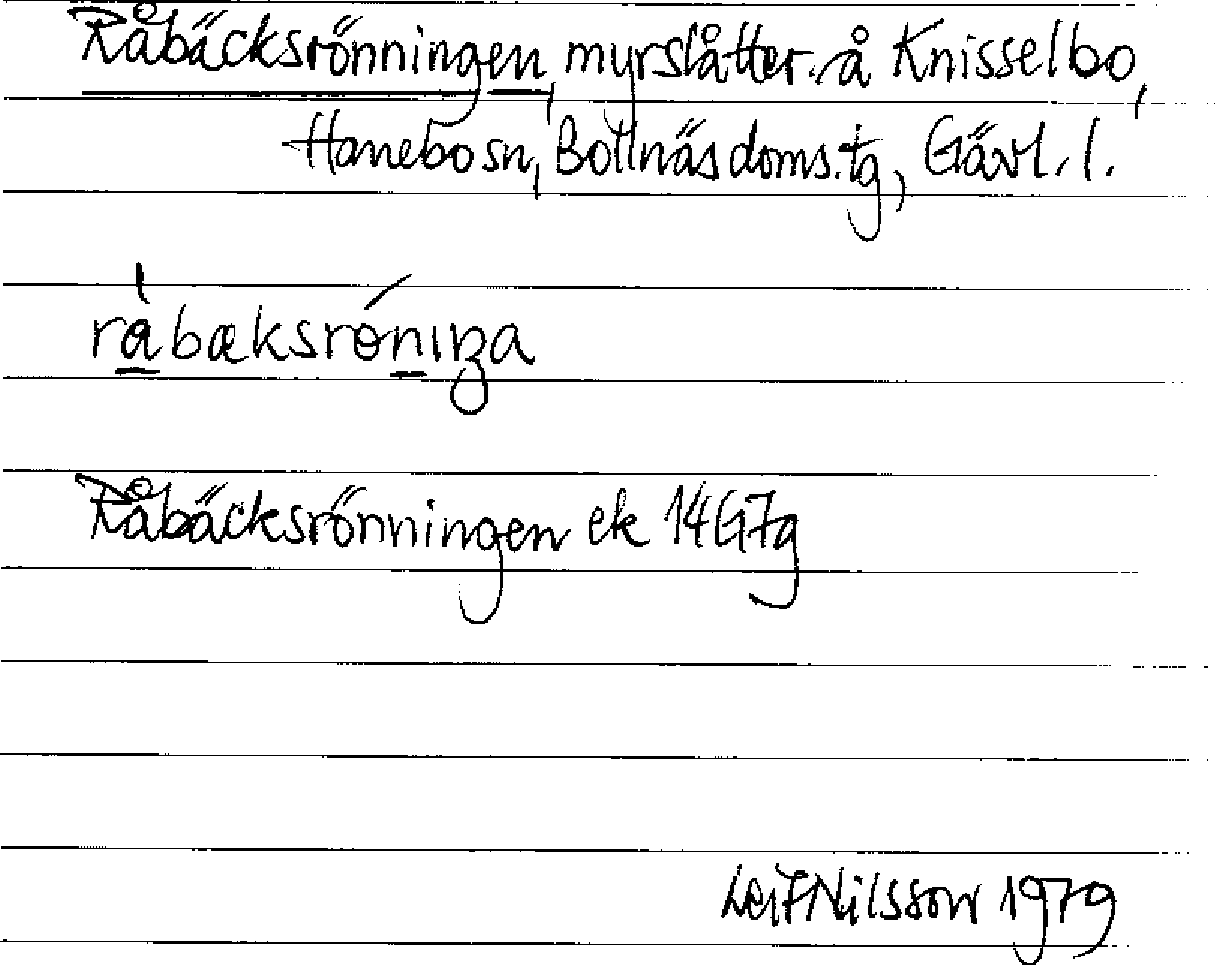 Råbäcksrönningen, myrslåtter å Knisselbo,
Hanebo sn, Bollnäs doms. tg, Gävl. l.
råbæksrönıŋa
Råbäcksrönningen ek 14G7g
Leif Nilsson 1979